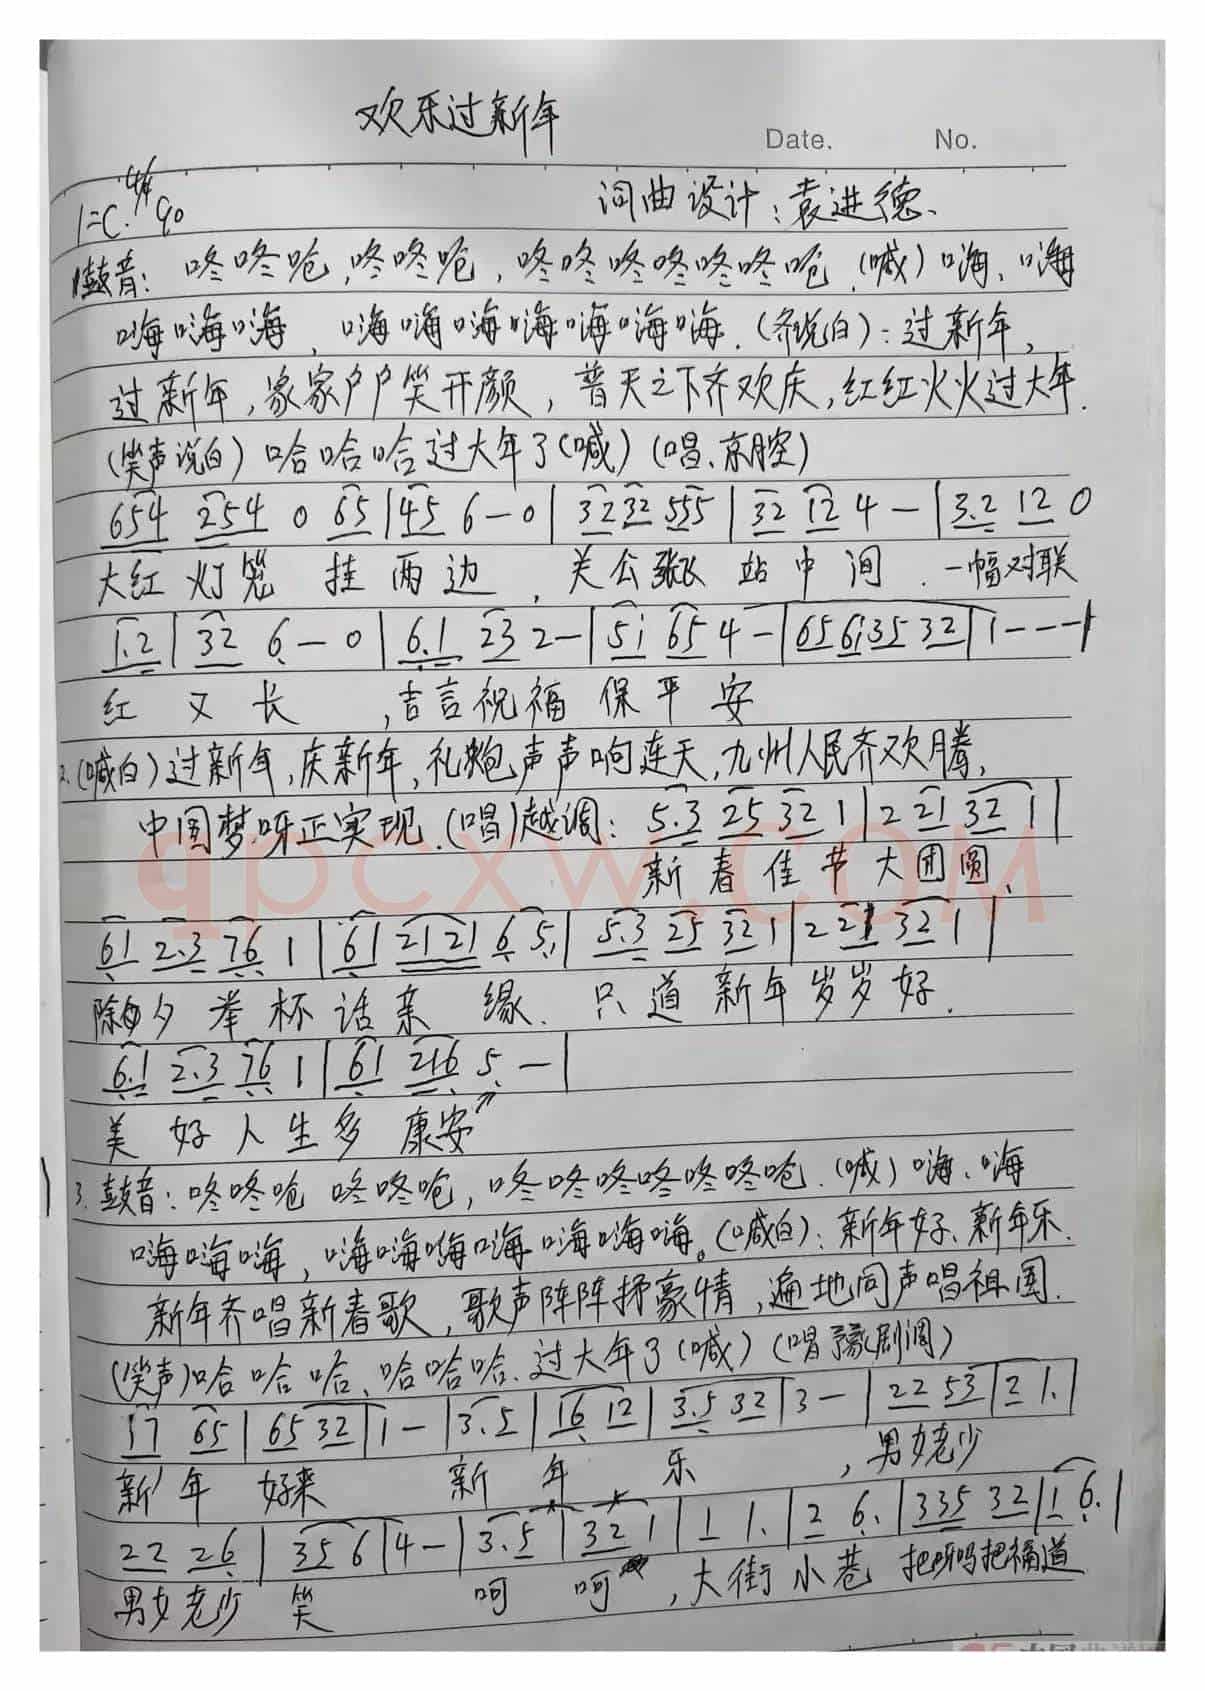 欢乐过新年
Date. No.
1=C. 4/4 90 词曲设计:袁进德、
1鼓音: 咚咚呛,咚咚呛,咚咚咚咚咚咚呛.(喊)嗨、嗨
嗨嗨嗨、嗨嗨嗨嗨嗨嗨嗨.(齐说白):过新年,
过新年,家家户户笑开颜,普天之下齐欢庆,红红火火过大年.
(笑声说白)哈哈哈过大年了(喊)(唱、京腔)
654 254 0 65|45 6-0|3232 555|32 12 4-|3.2 12 0
大红灯笼 挂两边,关公张飞站中间.一幅对联
1.2|32 6-0|6.1 23 2-|51 65 4-|65 6135 32|1---|
红又长,吉言祝福保平安
2.(喊白)过新年,庆新年,礼炮声声响连天,九州人民齐欢腾,
中国梦呀正实现.(唱)越调: 5.3 25 32 1|2 21 32 1|
新春佳节大团圆、
qpcxw.COM
61 2.3 76 1|61 2121 6 5|5.3 25 32 1|2 21 32 1|
除夕举杯话亲缘、只道新年岁岁好.
6.1 2.3 76 1|61 216 5-|
美好人生多康安
3.鼓音:咚咚呛 咚咚呛,咚咚咚咚咚咚呛.(喊)嗨、嗨
嗨嗨嗨,嗨嗨嗨嗨嗨嗨嗨。(喊白):新年好、新年乐.
新年齐唱新春歌,歌声阵阵抒豪情,遍地同声唱祖国.
(笑声)哈哈哈、哈哈哈、过大年了(喊)(唱豫剧调)
17 65|65 32|1-|3.5|16 12|3.5 32|3-|22 53|2 1.|
新年好来 新年乐,男女老少
22 26|35 6|4-|3.5|32 1|1 1.|2 6.|335 32|1 6.|
男女老少笑呵呵,大街小巷 把呀吗把福道